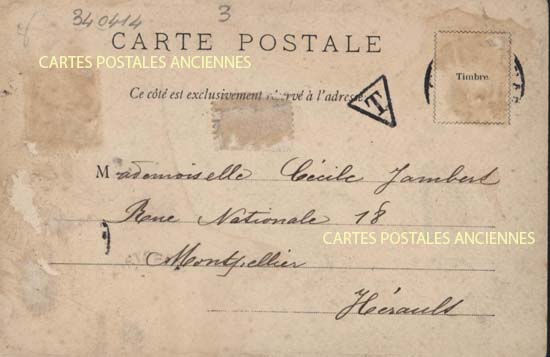 340414
3
CARTE POSTALE
CARTES POSTALES ANCIENNES
Timbre
Ce côté est exclusivement réservé à l'adresse
T
Mademoiselle Cécile Jambert
Rue Nationale 18
CARTES POSTALES ANCIENNES
Montpellier
Hérault